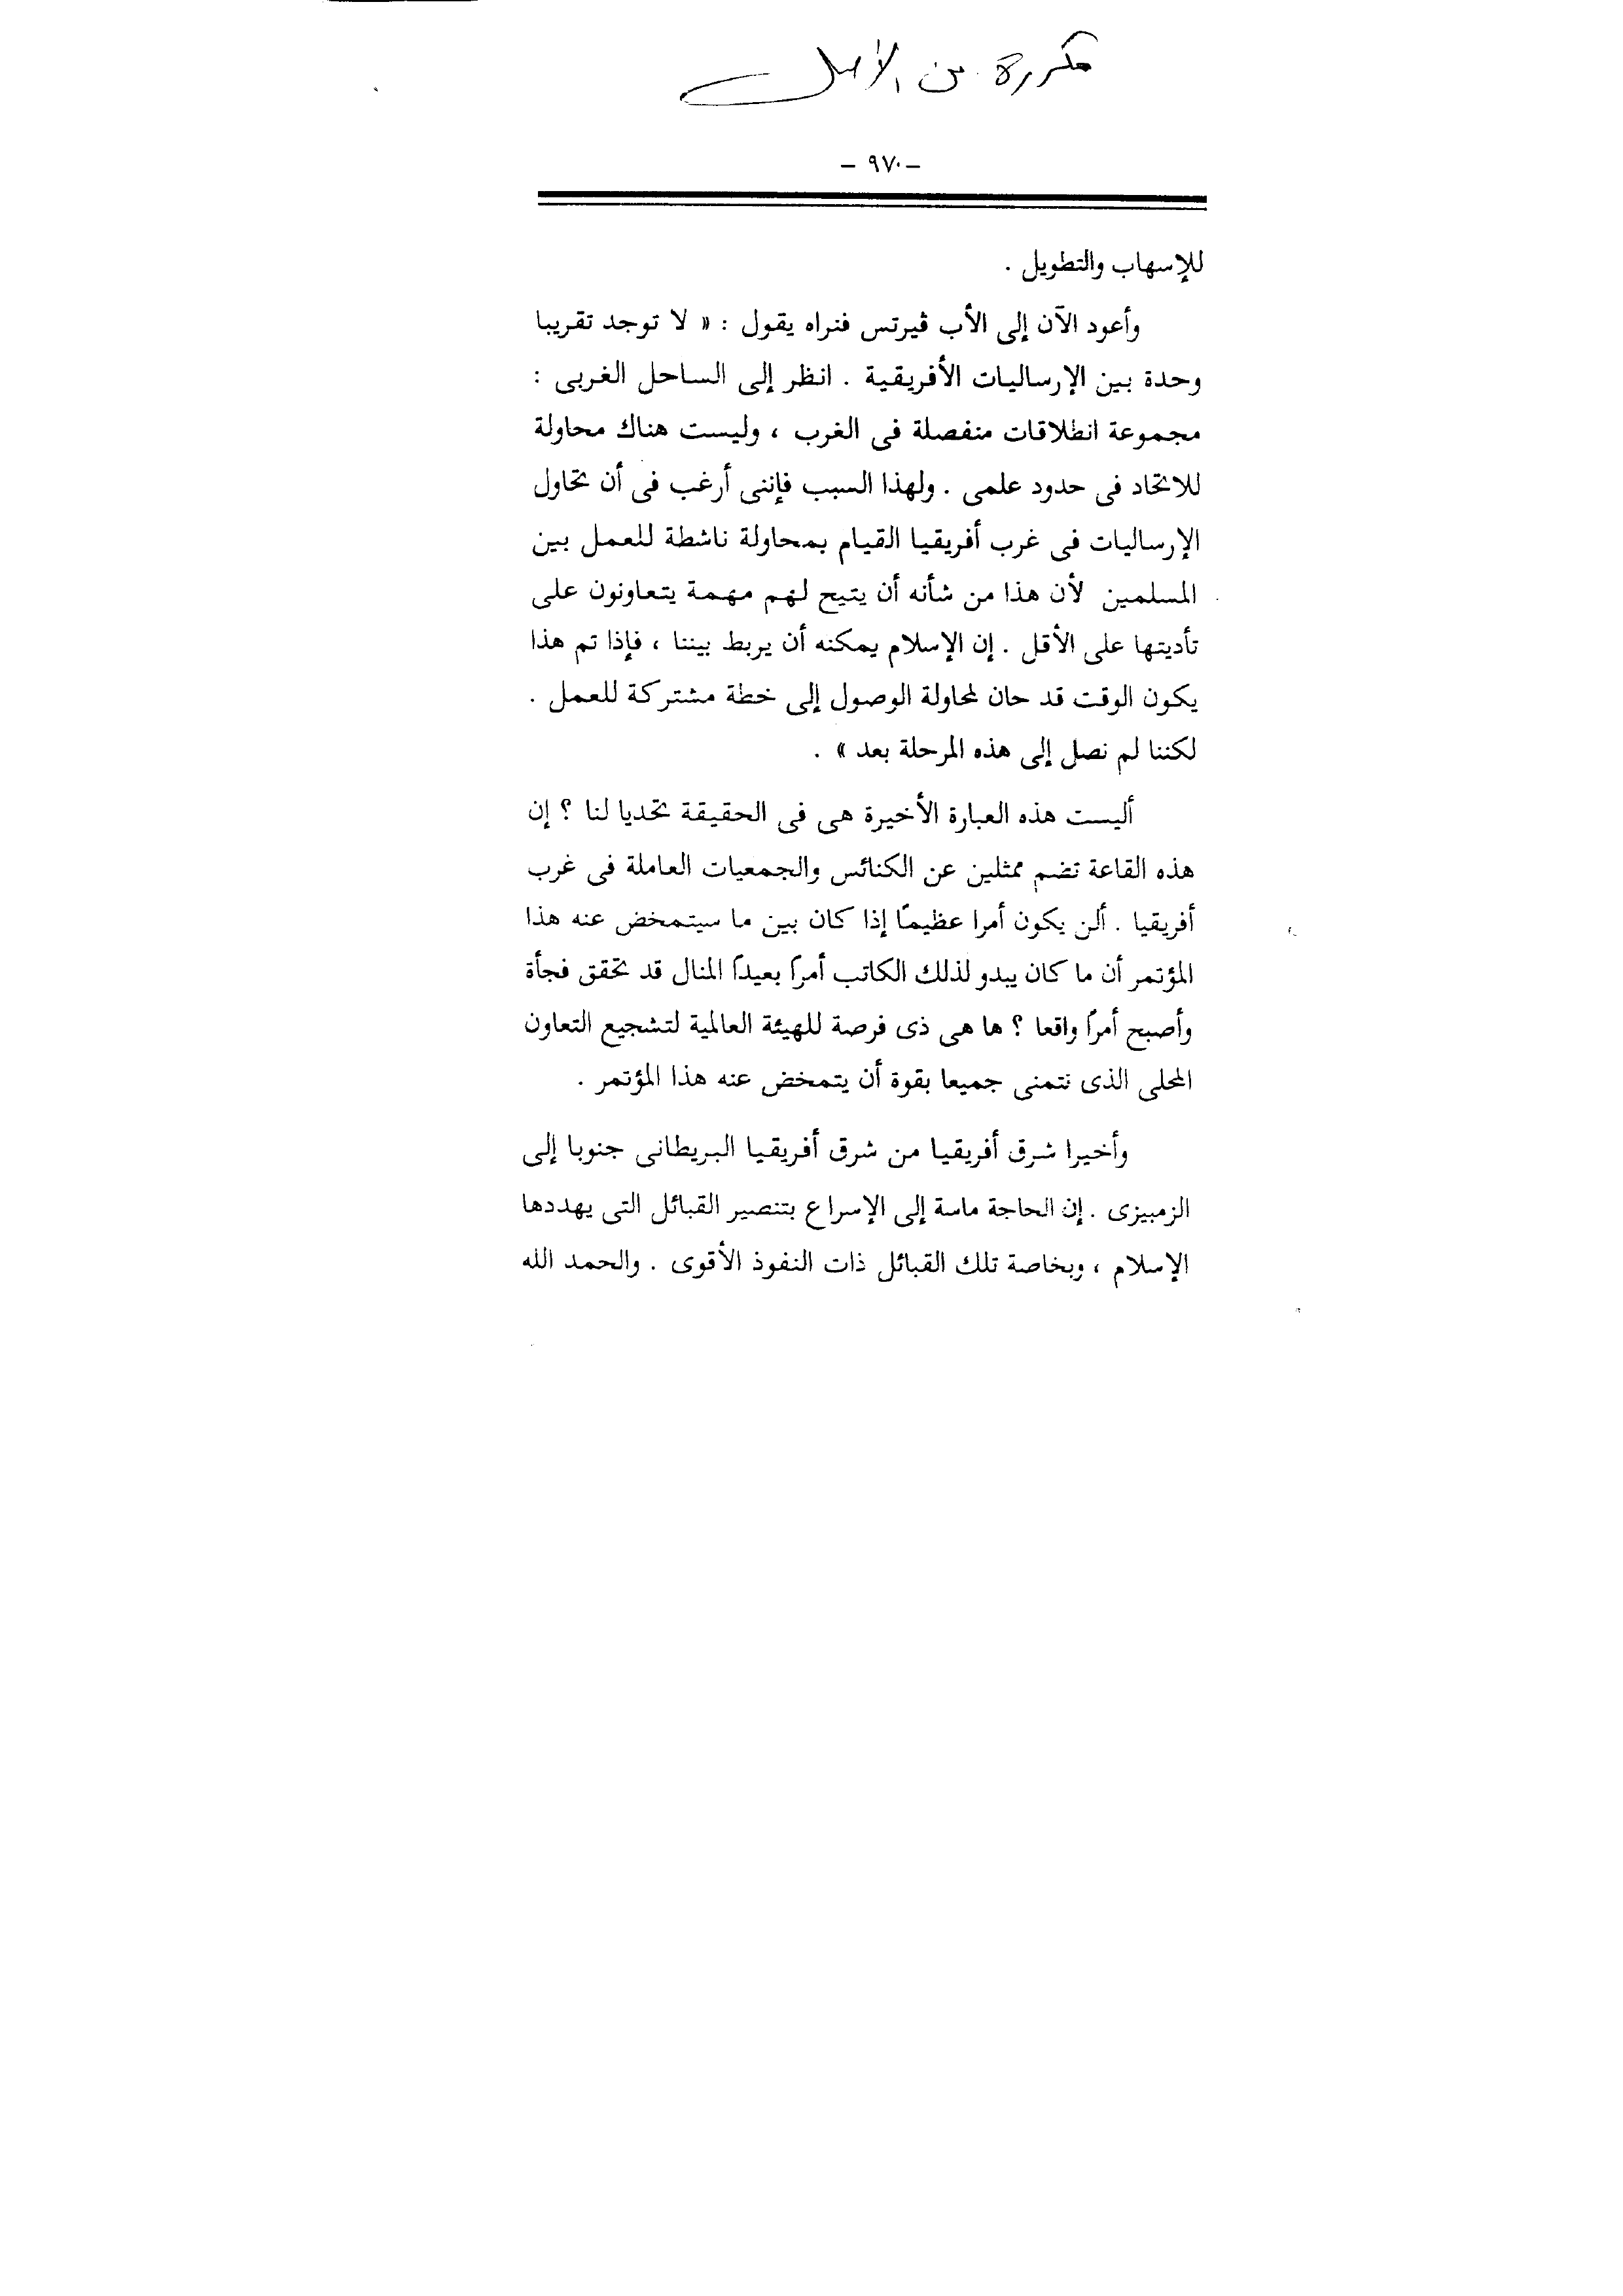 مكررة من الأصل
– ٩٧٠ –
للإسهاب والتطويل .
وأعود الآن إلى الأب ڤيرتس فنراه يقول : « لا توجد تقريبا
وحدة بين الإرساليات الأفريقية . انظر إلى الساحل الغربى :
مجموعة انطلاقات منفصلة فى الغرب ، وليست هناك محاولة
للاتحاد فى حدود علمى . ولهذا السبب فإننى أرغب فى أن تحاول
الإرساليات فى غرب أفريقيا القيام بمحاولة ناشطة للعمل بين
المسلمين لأن هذا من شأنه أن يتيح لهم مهمة يتعاونون على
تأديتها على الأقل . إن الإسلام يمكنه أن يربط بيننا ، فإذا تم هذا
يكون الوقت قد حان لمحاولة الوصول إلى خطة مشتركة للعمل .
لكننا لم نصل إلى هذه المرحلة بعد » .
أليست هذه العبارة الأخيرة هى فى الحقيقة تحديا لنا ؟ إن
هذه القاعة تضم ممثلين عن الكنائس والجمعيات العاملة فى غرب
أفريقيا . ألن يكون أمرا عظيمًا إذا كان بين ما سيتمخض عنه هذا
المؤتمر أن ما كان يبدو لذلك الكاتب أمرًا بعيدًا المنال قد تحقق فجأة
وأصبح أمرًا واقعا ؟ ها هى ذى فرصة للهيئة العالمية لتشجيع التعاون
المحلى الذى نتمنى جميعا بقوة أن يتمخض عنه هذا المؤتمر .
وأخيرا شرق أفريقيا من شرق أفريقيا البريطانى جنوبا إلى
الزمبيزى . إن الحاجة ماسة إلى الإسراع بتنصير القبائل التى يهددها
الإسلام ، وبخاصة تلك القبائل ذات النفوذ الأقوى . والحمد الله